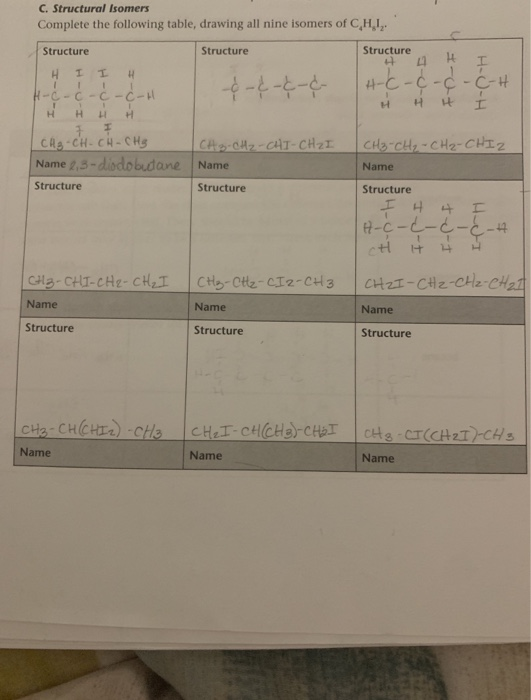 C. Structural Isomers
Complete the following table, drawing all nine isomers of C₄H₈I₂.
Structure Structure Structure
H I I H
H-C-C-C-C-H
H H H H
-C-C-C-C-
H H H I
H-C-C-C-C-H
H H H I
I I
CH3-CH-CH-CH3 CH3-CH2-CHI-CH2I CH3-CH2-CH2-CHI2
Name 2,3-diodobutane Name Name
Structure Structure Structure
I H H I
H-C-C-C-C-H
H H H H
CH3-CHI-CH2-CH2I CH3-CH2-CI2-CH3 CH2I-CH2-CH2-CH2I
Name Name Name
Structure Structure Structure
CH3-CH(CHI2)-CH3 CH2I-CH(CH3)-CH2I CH3-CI(CH2I)-CH3
Name Name Name